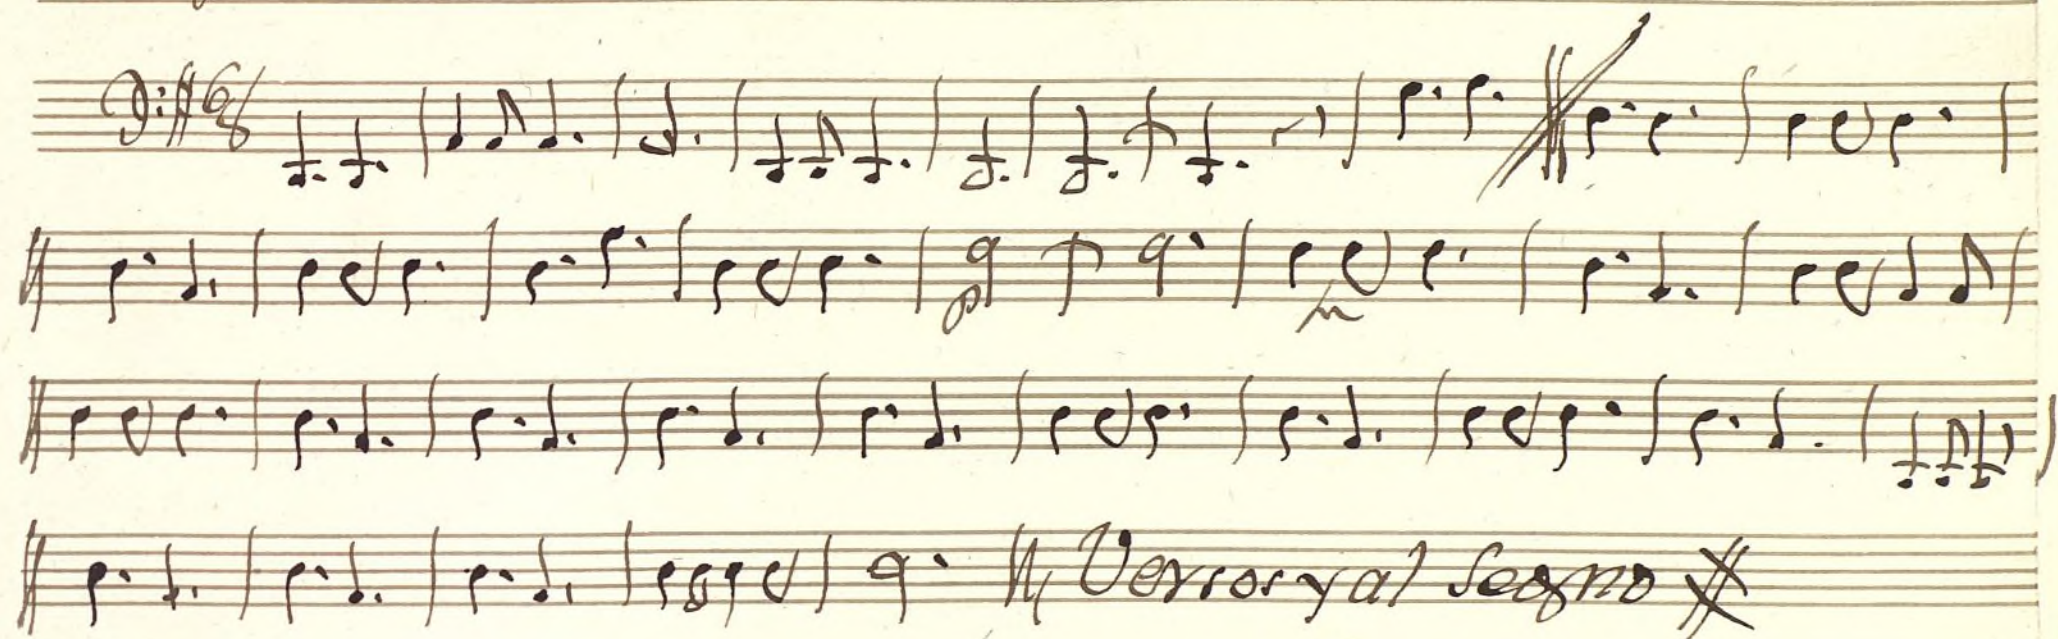 6/8
p
Versos y al Segno